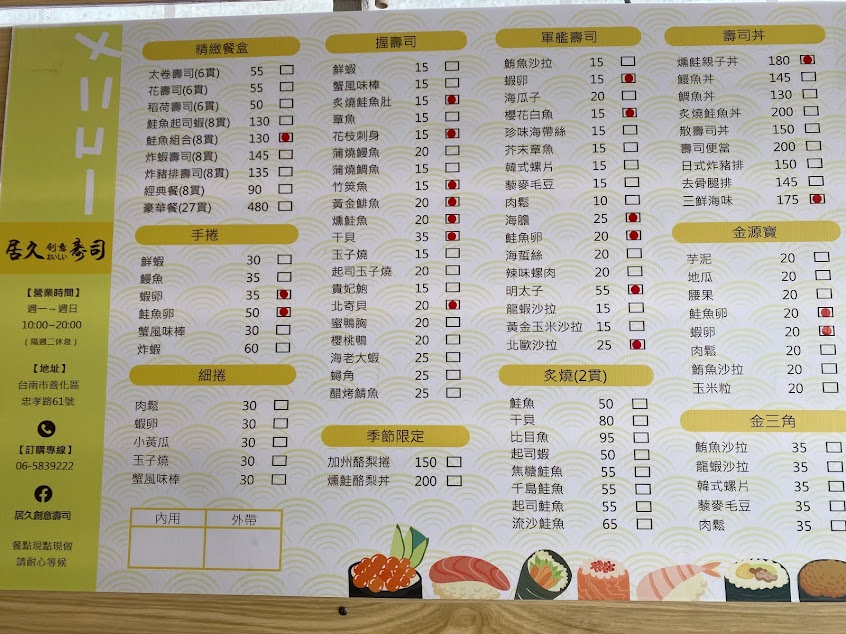 メニュー
居久 創意 壽司
おいしい
【營業時間】
週一~週日
10:00~20:00
(隔週二休息)
【地址】
台南市善化區
忠孝路61號
【訂購專線】
06-5839222
居久創意壽司
餐點現點現做
請耐心等候
精緻餐盒
太卷壽司(6貫) 55
花壽司(6貫) 55
稻荷壽司(6貫) 50
鮭魚起司蝦(8貫) 130
鮭魚組合(8貫) 130
炸蝦壽司(8貫) 145
炸豬排壽司(8貫) 135
經典餐(8貫) 90
豪華餐(27貫) 480
手捲
鮮蝦 30
鰻魚 35
蝦卵 35
鮭魚卵 50
蟹風味棒 30
炸蝦 60
細捲
肉鬆 30
蝦卵 30
小黃瓜 30
玉子燒 30
蟹風味棒 30
內用 外帶
握壽司
鮮蝦 15
蟹風味棒 15
炙燒鮭魚肚 15
章魚 15
花枝刺身 15
蒲燒鰻魚 20
蒲燒鯛魚 15
竹筴魚 15
黃金鯡魚 20
燻鮭魚 20
干貝 35
玉子燒 15
起司玉子燒 20
貴妃鮑 15
北寄貝 20
蜜鴨胸 20
櫻桃鴨 20
海老大蝦 25
蟳角 25
醋烤鯖魚 25
季節限定
加州酪梨捲 150
燻鮭酪梨丼 200
軍艦壽司
鮪魚沙拉 15
蝦卵 15
海瓜子 20
櫻花白魚 15
珍味海帶絲 15
芥末章魚 15
韓式螺片 15
藜麥毛豆 15
肉鬆 10
海膽 25
鮭魚卵 20
海蜇絲 20
辣味螺肉 20
明太子 55
龍蝦沙拉 15
黃金玉米沙拉 15
北歐沙拉 25
炙燒(2貫)
鮭魚 50
干貝 80
比目魚 95
起司蝦 50
焦糖鮭魚 55
千島鮭魚 55
起司鮭魚 55
流沙鮭魚 65
壽司丼
燻鮭親子丼 180
鰻魚丼 145
鯛魚丼 130
炙燒鮭魚丼 200
散壽司丼 150
壽司便當 200
日式炸豬排 150
去骨腿排 145
三鮮海味 175
金源寶
芋泥 20
地瓜 20
腰果 20
鮭魚卵 20
蝦卵 20
肉鬆 20
鮪魚沙拉 20
玉米粒 20
金三角
鮪魚沙拉 35
龍蝦沙拉 35
韓式螺片 35
藜麥毛豆 35
肉鬆 35